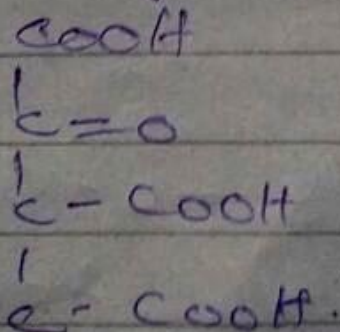 COOH
|
C=O
|
C-COOH
|
C-COOH.